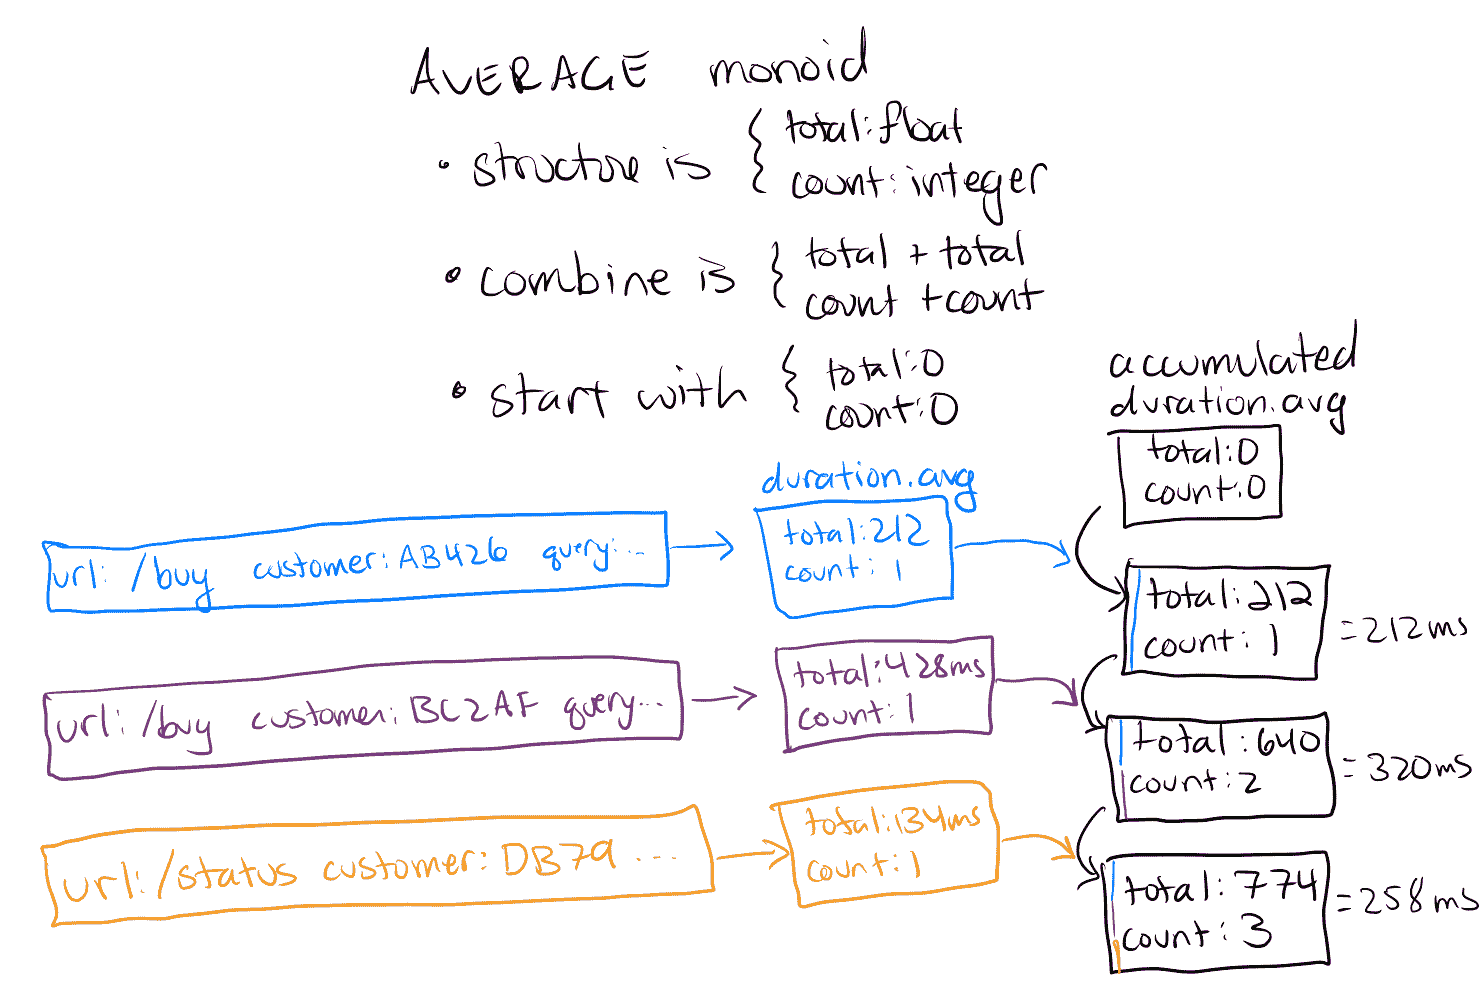 AVERAGE monoid
• structure is { total: float
count: integer
• combine is { total + total
count + count
• start with { total: 0
count: 0
accumulated
duration.avg
total: 0
count: 0
duration.avg
url: /buy customer: AB426 query: ...
total: 212
count: 1
total: 212
count: 1
= 212 ms
url: /buy customer: BC2AF query...
total: 428ms
count: 1
total: 640
count: 2
= 320 ms
url: /status customer: DB79 ...
total: 134ms
count: 1
total: 774
count: 3
= 258 ms